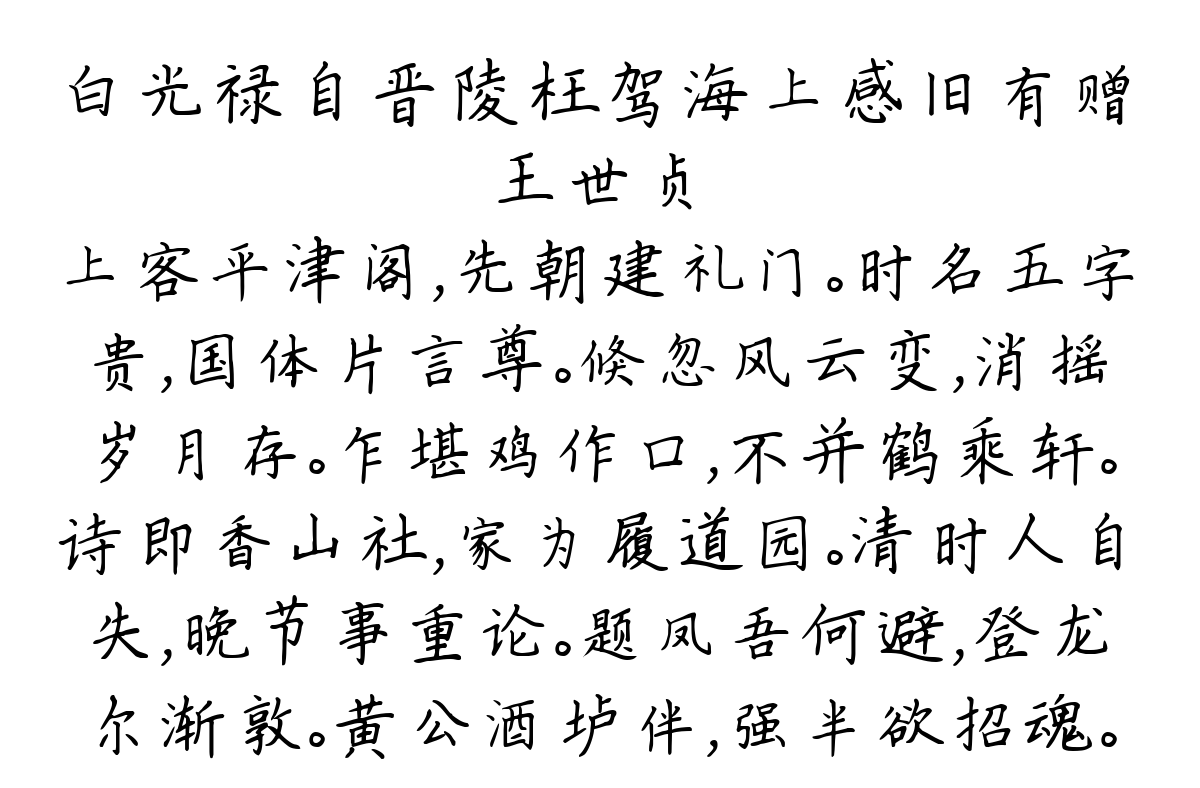 白光禄自晋陵枉驾海上感旧有赠
王世贞
上客平津阁,先朝建礼门。时名五字
贵,国体片言尊。倏忽风云变,消摇
岁月存。乍堪鸡作口,不并鹤乘轩。
诗即香山社,家为履道园。清时人自
失,晚节事重论。题凤吾何避,登龙
尔渐敦。黄公酒垆伴,强半欲招魂。